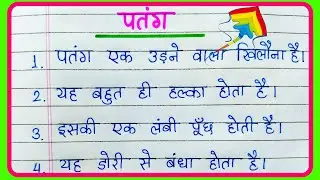 पतंग
1. पतंग एक उड़ने वाला खिलौना है।
2. यह बहुत ही हल्का होता है।
3. इसकी एक लंबी पूँछ होती है।
4. यह डोरी से बंधा होता है।